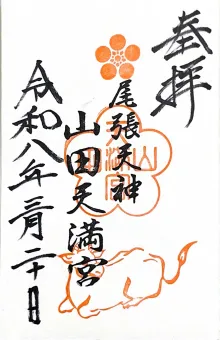 奉拝
尾張天神
山田天満宮
令和八年二月二十日